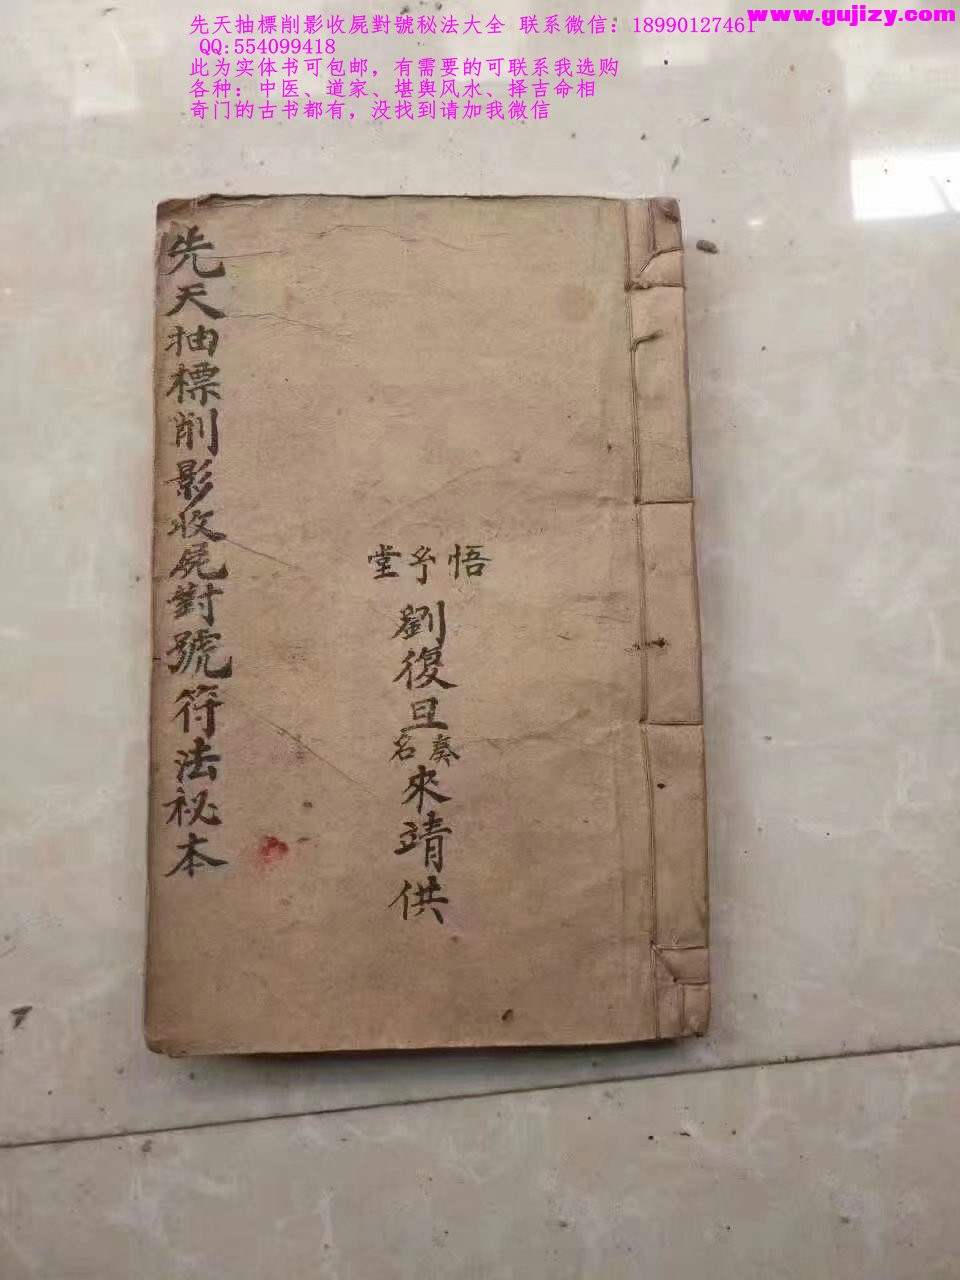 www.gujizy.com
先天抽標削影收屍對號秘法大全 联系微信：18990127461
QQ:554099418
此为实体书可包邮，有需要的可联系我选购
各种：中医、道家、堪舆风水、择吉命相
奇门的古书都有，没找到请加我微信
悟 堂
劉復旦
奏名
來靖供
先天抽標削影收屍對號符法祕本